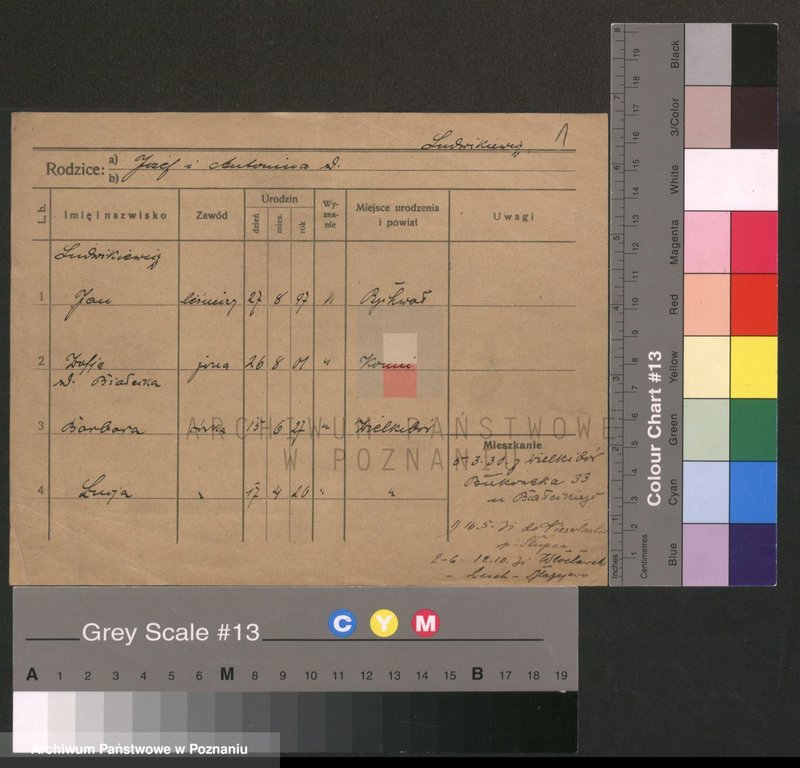 Ludwikiewicz 1
Rodzice: a) Józef i Antonina d.
b)
L. b. Imię i nazwisko Zawód Urodzin dzień mies. rok Wy-zna-nie Miejsce urodzenia i powiat Uwagi
Ludwikiewicz
1 Jan leśniczy 27 8 97 Rychwał
2 Zofja żona 26 8 01 " Konin
d. Białecka
3 Barbara córka 15 6 27 " Wielkibór
Mieszkanie
5.3.30. z Wielkibór
Bukowska 33
u Białeckiego
4 Łucja " 17 4 26 " "
1) 16.5. do
p. Słupca
2-6 12.10.
ARCHIWUM PAŃSTWOWE
W POZNANIU
Colour Chart #13
Black
3/Color
White
Magenta
Red
Yellow
Green
Cyan
Blue
Inches 1 2 3 4 5 6 7 8
Centimetres 1 2 3 4 5 6 7 8 9 10 11 12 13 14 15 16 17 18 19
Grey Scale #13 C Y M
A 1 2 3 4 5 6 M 8 9 10 11 12 13 14 15 B 17 18 19
Archiwum Państwowe w Poznaniu